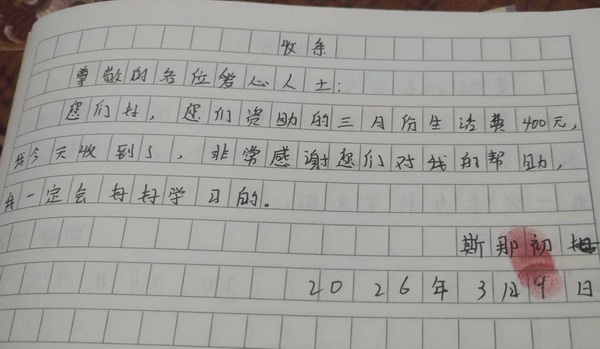 收条
尊敬的各位爱心人士：
您们好，您们资助的三月份生活费400元，
我今天收到了，非常感谢您们对我的帮助，
我一定会好好学习的。
斯那初
2026年3月9日